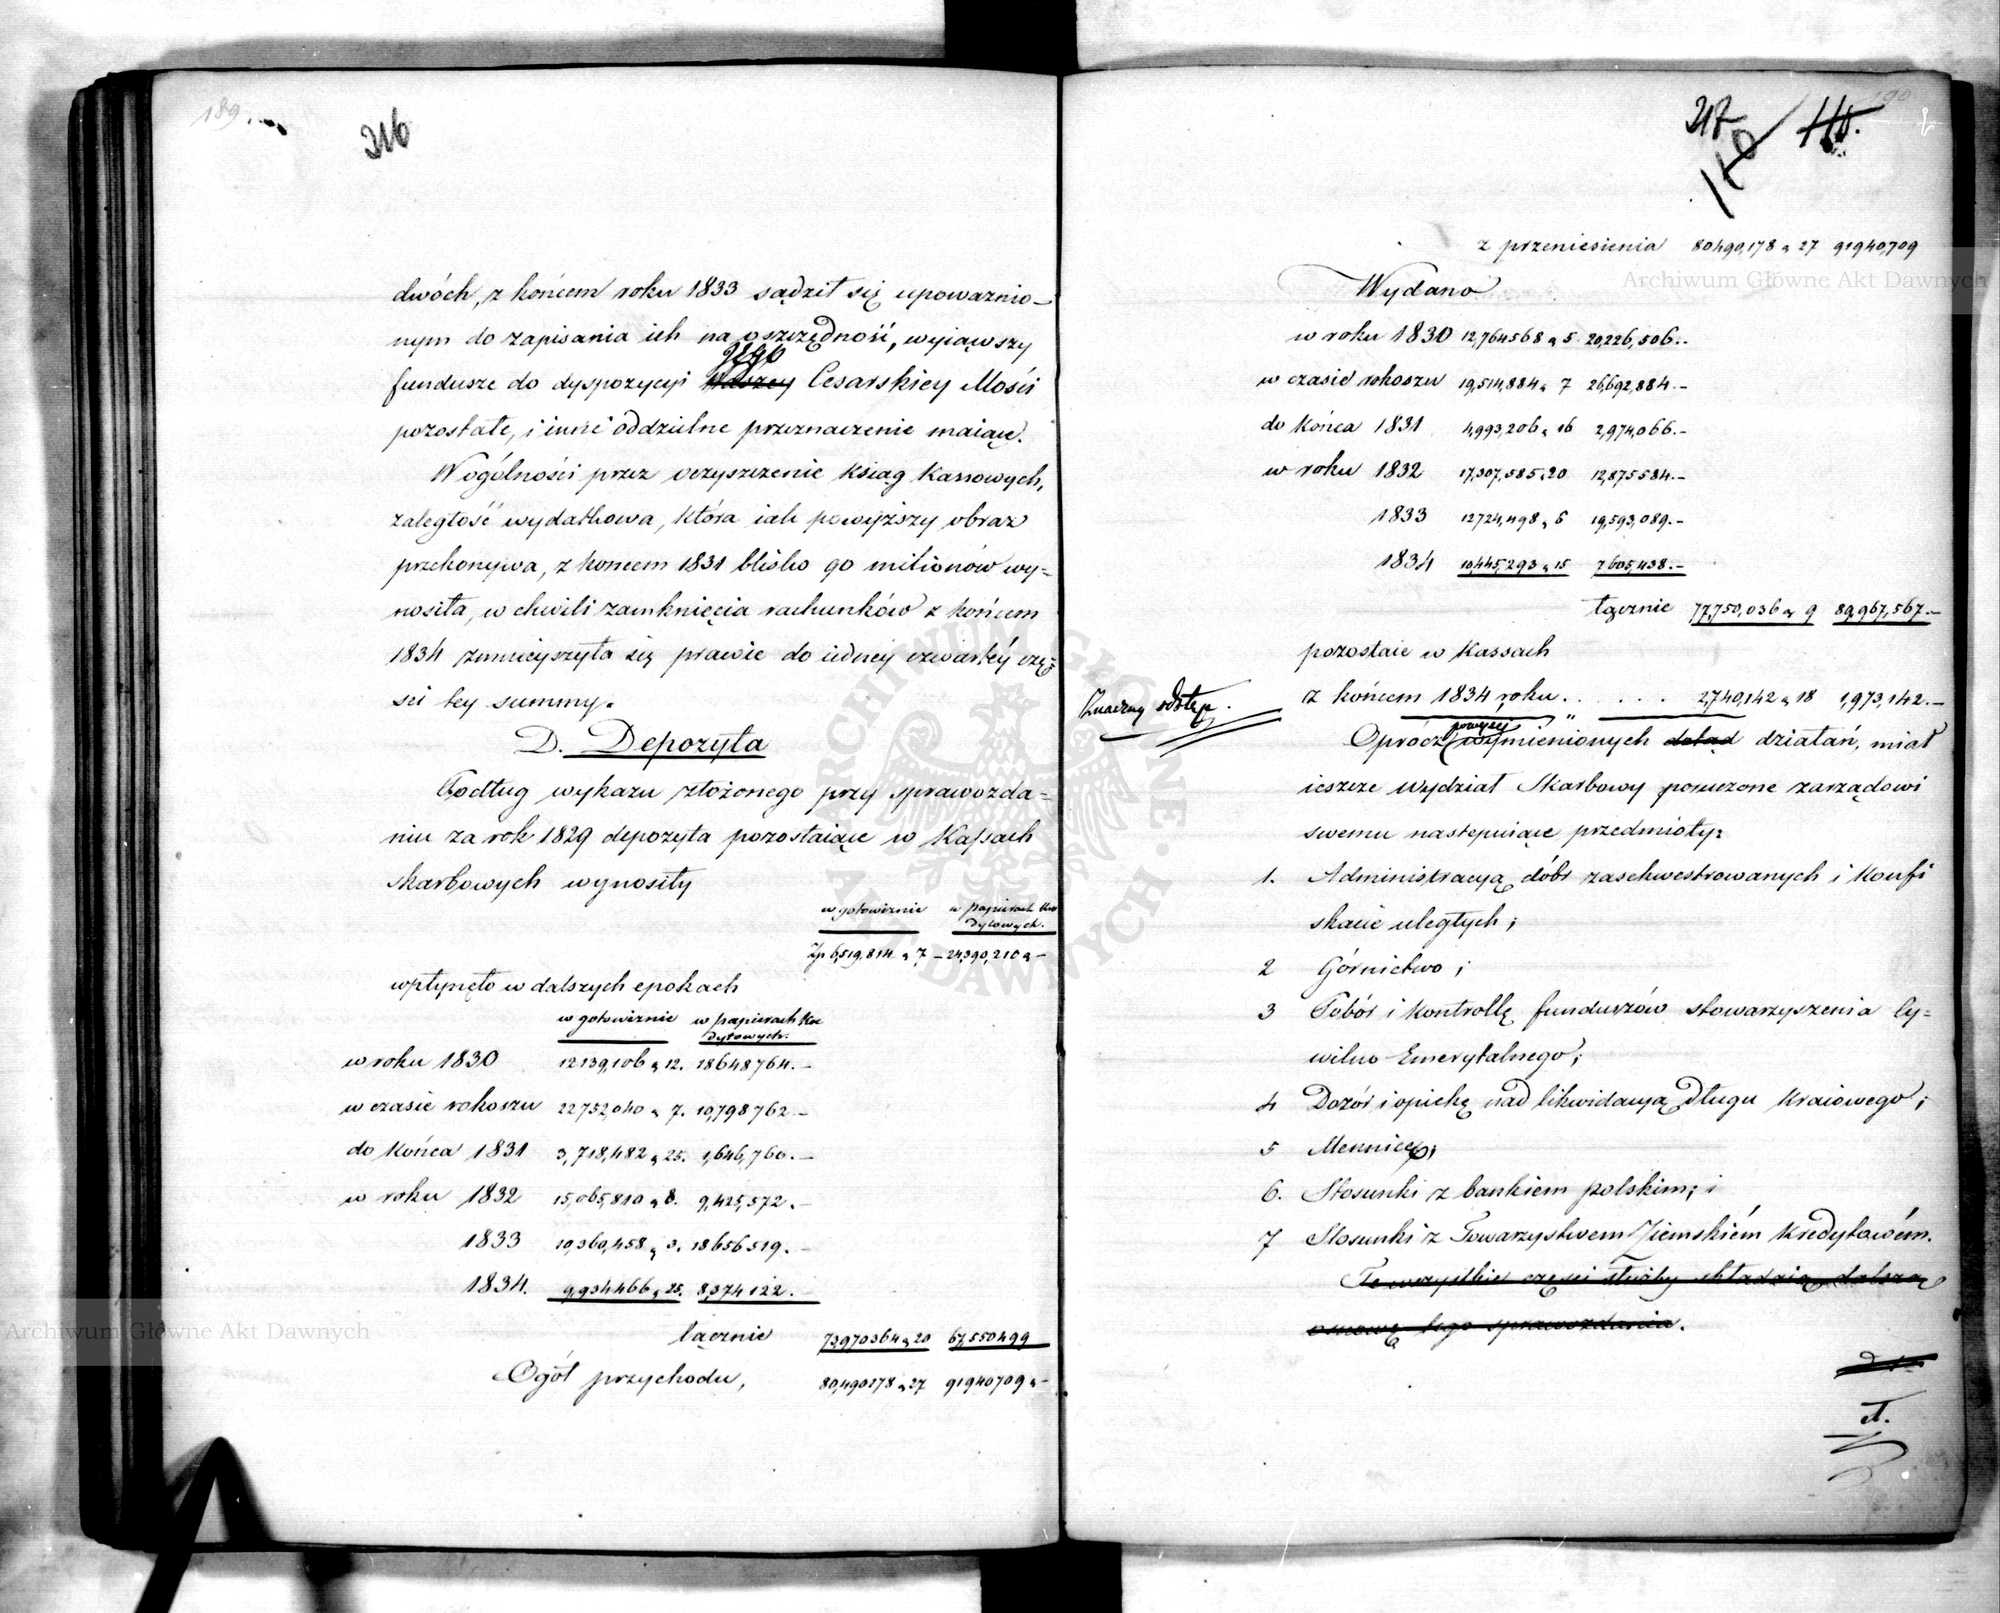 189.
216
dwóch, z końcem roku 1833 sądził się upoważnio-
nym do zapisania ich na oszczędność, wyiąwszy
Jego
fundusze do dyspozycyi Waszey Cesarskiey Mości
pozostałe, i inne oddzielne przeznaczenie maiące.
W ogólności przez oczyszczenie ksiąg Kassowych,
zaległość wydatkowa, która iak powyższy obraz
przekonywa, z końcem 1831 blisko 90 milionów wy=
nosiła, w chwili zamknięcia rachunków z końcem
1834 zmnieyszyła się prawie do iedney czwartéy czę=
sci tey summy.
D. Depozyta
Podług wykazu złożonego przy sprawozda=
niu za rok 1829 depozyta pozostaiące w Kassach
skarbowych wynosiły
w gotowiznie w papierach Kre
dytowych.
Zp 6,519,814 „ 7 – 24,390,210 „ –
wpłynęło w dalszych epokach
w gotowiznie w papierach Kre
dytowych.
w roku 1830 12139,106 „ 12. 18648764. –
w czasie rokoszu 22752,040 „ 7. 10,798762 –
do Końca 1831 3,718,482 „ 25. 1,646,760. –
w roku 1832 15,065,810 „ 8. 9,425,572. –
1833 10,360,458 „ 3. 18656519. –
1834. 9,934466 „ 25. 8,374122. –
łącznie 73970364 „ 20 67,550499
Ogół przychodu, 80,490178 „ 27 91940709 „ –
190
217
z przeniesienia 80490,178 „ 27 91940,709
Wydano
w roku 1830 12,764568 „ 5 20,226,506. –
w czasie rokoszu 19,514,884 „ 7 26,692,884. –
do Końca 1831 4,993,206 „ 16 2,974,066. –
w roku 1832 17,307,585 „ 20 12,875584. –
1833 12724,498 „ 6 19,593,089. –
1834 10,445,293 „ 15 7605,438. –
łącznie 77,750,036 „ 9 89,967,567 –
pozostaie w Kassach
z końcem 1834 roku . . . . . 2,740,142 „ 18 1,973,142. –
Znaczny odstęp.
powyżej
Oprócz wymienionych dotąd działań, miał
ieszcze Wydział Skarbowy poruczone zarządowi
swemu następuiące przedmioty:
1. Administracyą dóbr zasekwestrowanych i Konfi
skacie uległych;
2 Górnictwo;
3 Pobór i kontrollę funduszów stowarzyszenia Cy=
wilno Emerytalnego;
4 Dozór i opiekę nad likwidacyą długu Kraiowego;
5 Mennicę;
6. Stosunki z bankiem polskim; i
7 Stosunki z Towarzystwem Ziemskiém Kredytowém.
Te wszystkie części służby składaią dalszą
osnowę tego sprawozdania.
Archiwum Główne Akt Dawnych
Archiwum Główne Akt Dawnych
ARCHIWUM GŁÓWNE AKT DAWNYCH